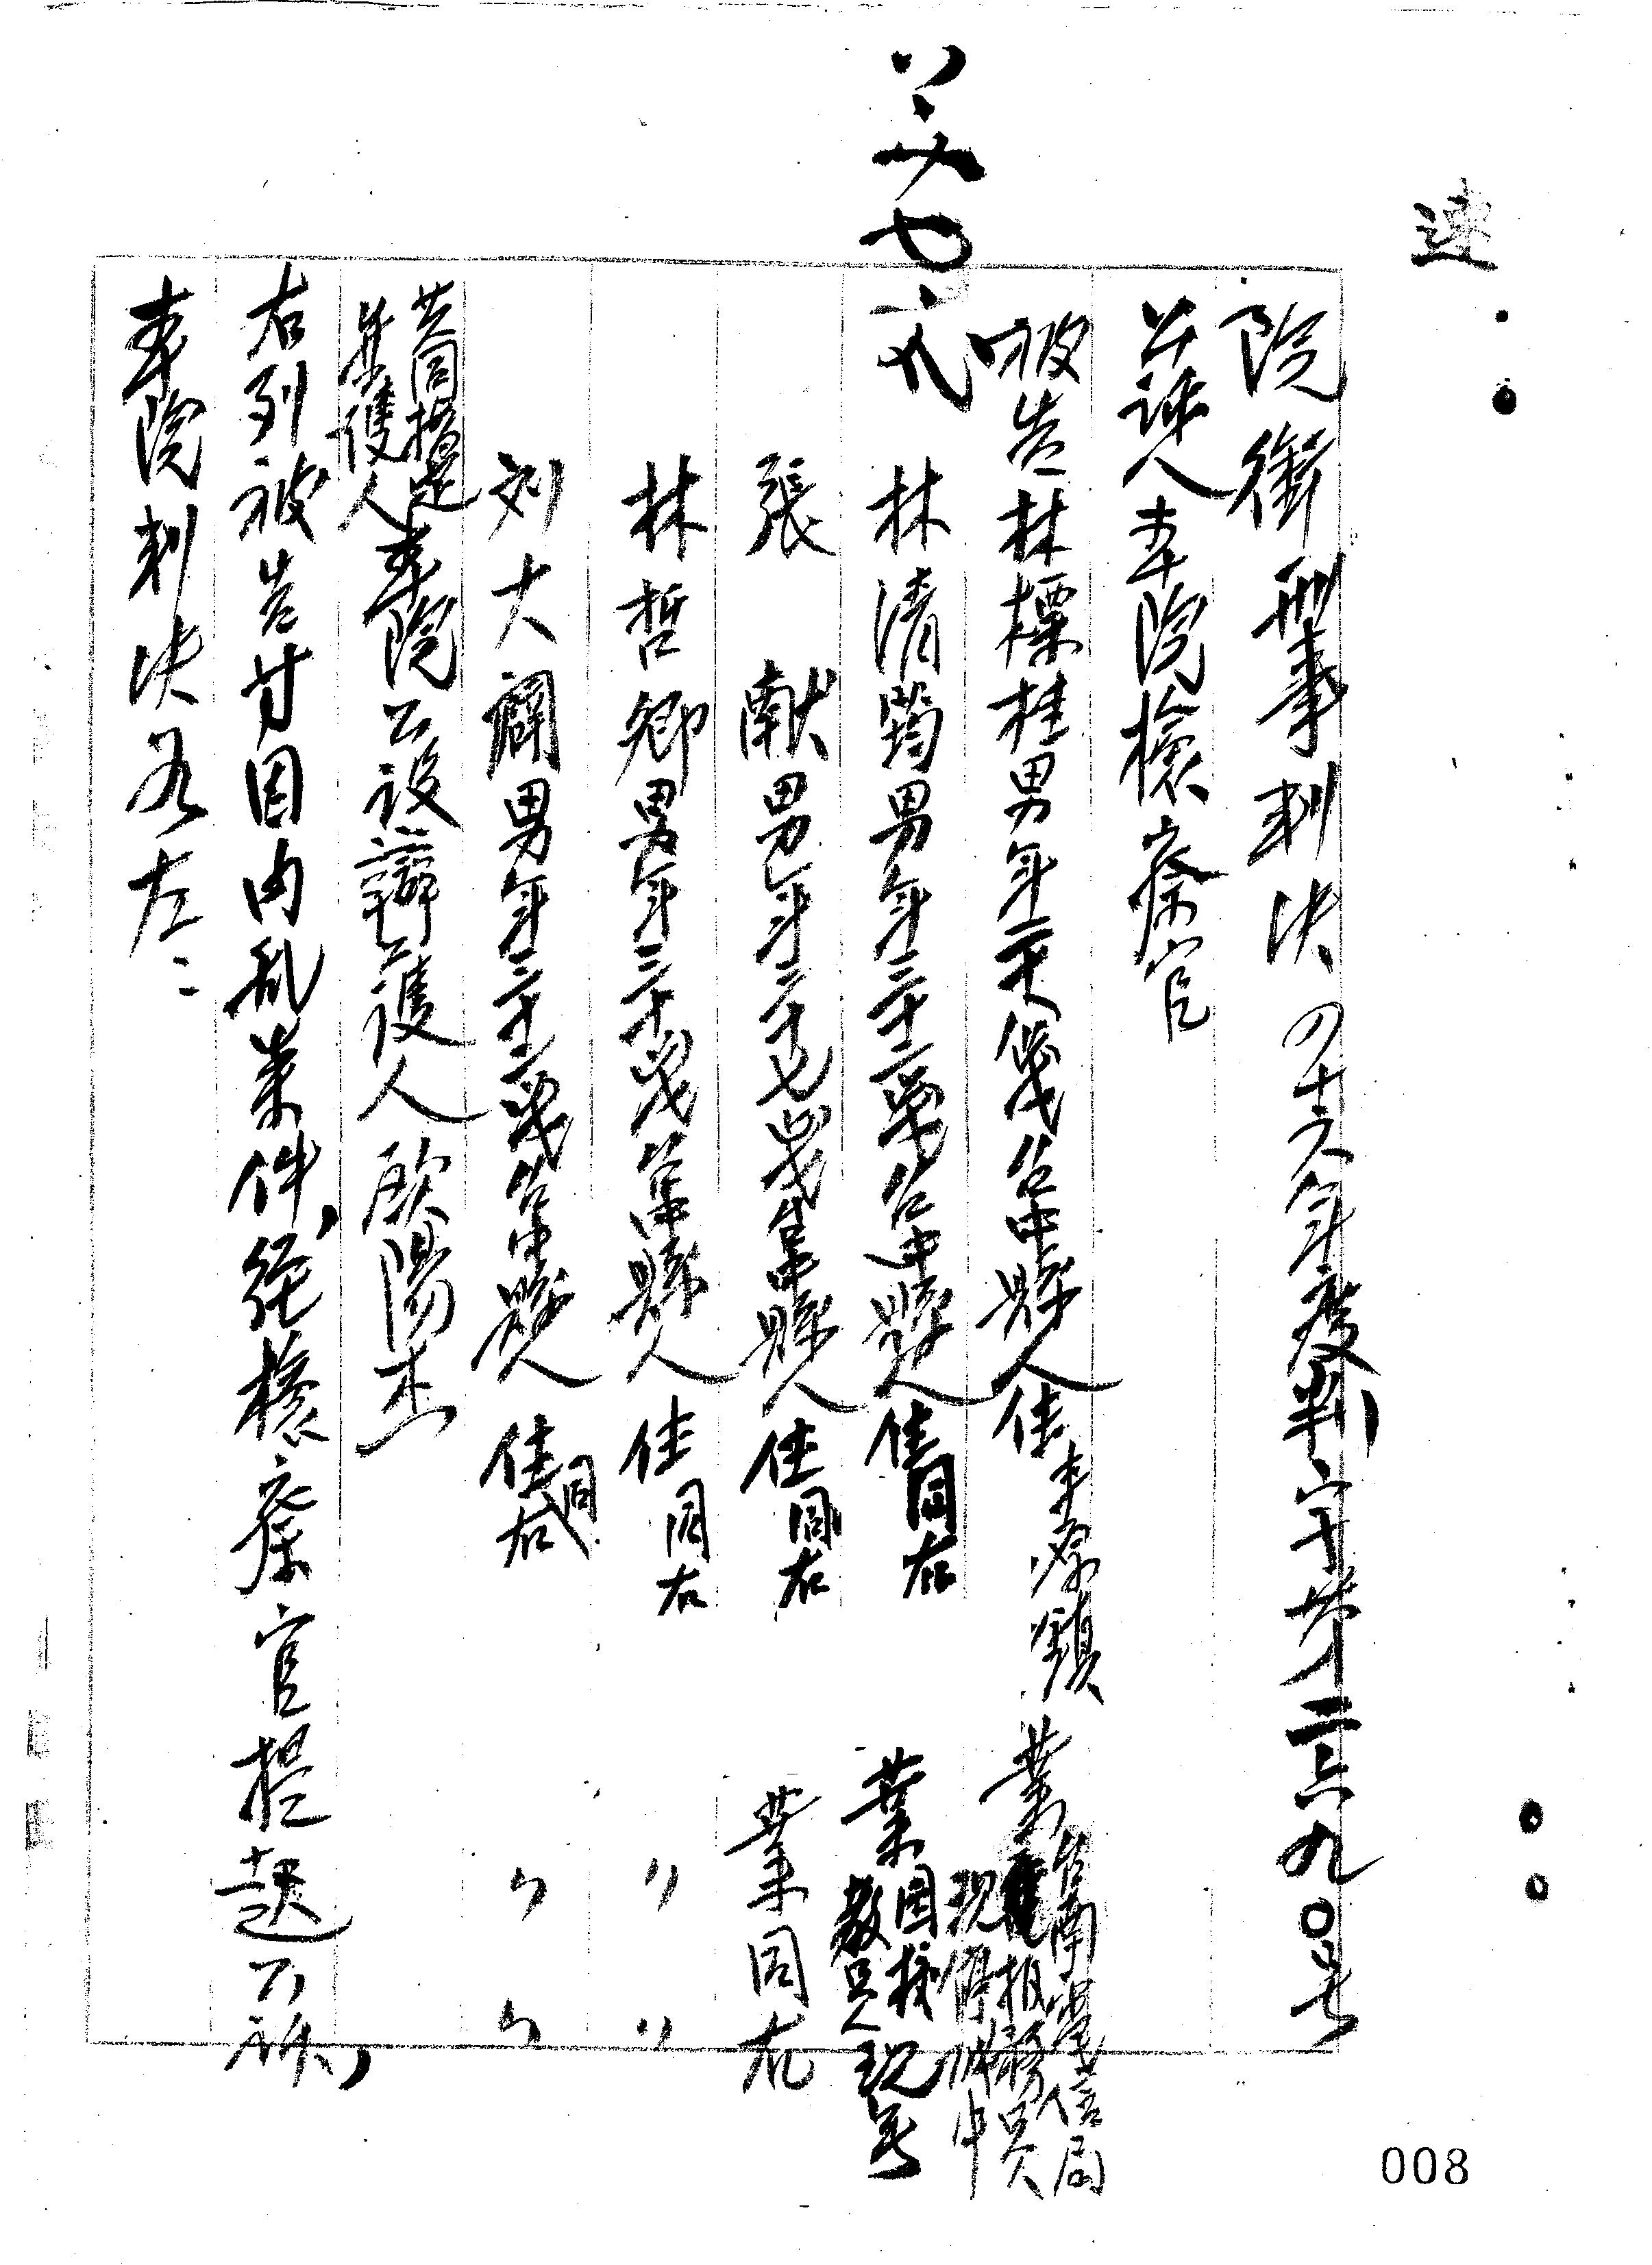 速
院銜刑事判決 四十六年度判字第二六九〇七
公訴人本院檢察官
被告林標桂男年二十八歲台中縣人住 業台南電信局報務員現停職中
林清筠男年三十二歲台中縣人住同右 業国校教員現無
張 献男年三十七歲台中縣人住同右 業同右
林哲卿男年三十歲台中縣人住同右 〃 〃
刘大 男年三十二歲台中縣人住同右 〃 〃
共同指定辯護人本院公設辯護人歐陽杰
右列被告等因內乱案件,經檢察官提起公訴,
本院判決如左:
008